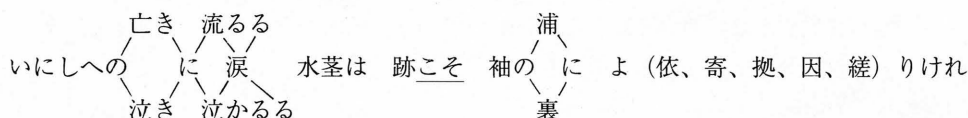 亡き 流るる 浦
いにしへの に 涙 水茎は 跡こそ 袖の に よ（依、寄、拠、因、縒）りけれ
泣き 泣かるる 裏